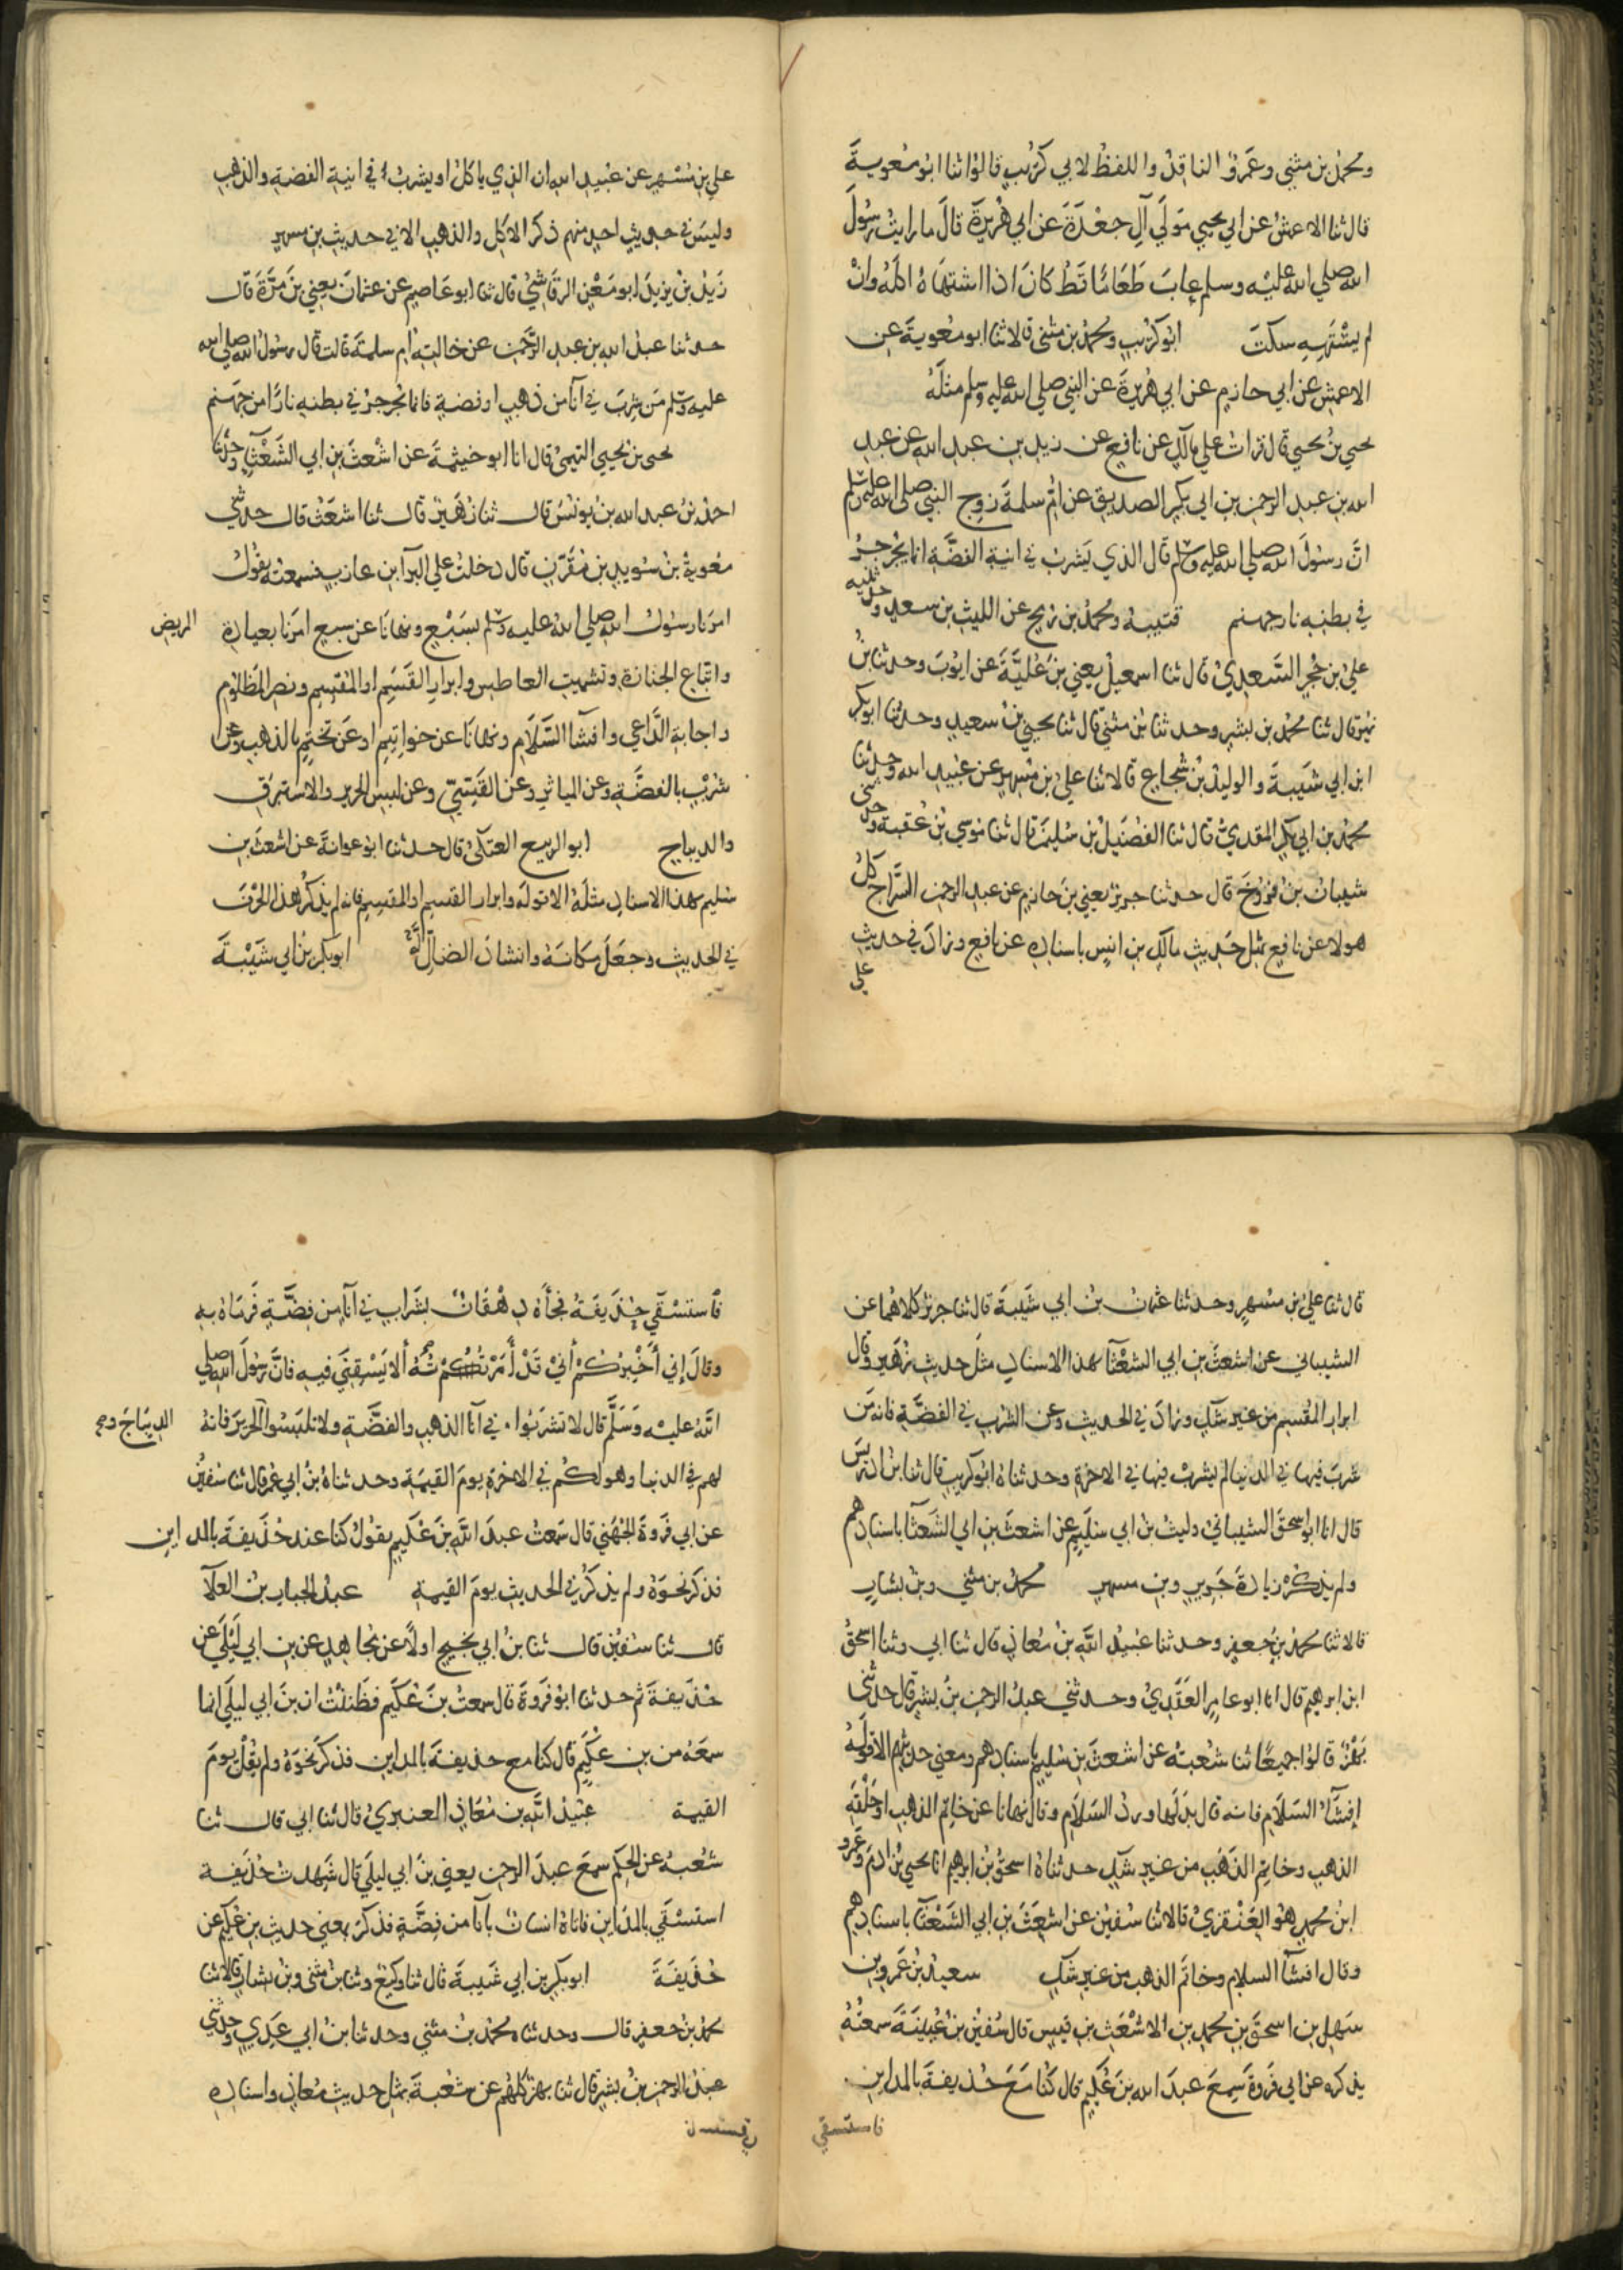 ومحمد بن مثني وعمرو الناقد واللفظ لابي كريب قالوا انا ابو معوية
قال ثنا الاعمش عن ابي يحيي مولي آل جعدة عن ابي هريرة قال ما رايت رسول
الله صلي الله عليه وسلم عاب طعاما قط كان اذا اشتهاه اكله وان
لم يشتهيه سكت ابو كريب ومحمد بن مثني قالا ثنا ابو معوية عن
الاعمش عن ابي حازم عن ابي هريرة عن النبي صلي الله عليه وسلم مثله
يحيي بن يحيي قال قرات علي مالك عن نافع عن زيد بن عبد الله عن عبد
الله بن عبد الرحمن بن ابي بكر الصديق عن ام سلمة زوج النبي صلي الله عليه وسلم
ان رسول الله صلي الله عليه وسلم قال الذي يشرب في انية الفضة انما يجرجر
في بطنه نار جهنم قتيبه ومحمد بن رمح عن الليث بن سعد وحدثنيه
علي بن حجر السعدي قال ثنا اسمعيل يعني بن علية عن ايوب وحدثنا بن
نمير قال ثنا محمد بن بشر وحدثنا بن مثني قال ثنا يحيي بن سعيد وحدثنا ابو بكر
ابن ابي شيبة والوليد بن شجاع قالا ثنا علي بن مسهر عن عبيد الله وحدثنا
محمد بن ابي بكر المقدمي قال ثنا الفضيل بن سليمن قال ثنا موسي بن عقبة وحدثني
شيبان بن فروخ قال حدثنا جرير يعني بن حازم عن عبد الرحمن السراج كل
هولا عن نافع بمثل حديث مالك بن انس باسناده عن نافع وزاد في حديث
علي
علي بن مسهر عن عبيد الله ان الذي ياكل او يشرب في انية الفضة والذهب
وليس في حديث احد منهم ذكر الاكل والذهب الا في حديث بن مسهر
زيد بن يزيد ابو معن الرقاشي قال ثنا ابو عاصم عن عثمان يعني بن مرة قال
حدثنا عبد الله بن عبد الرحمن عن خالته ام سلمة قالت قال رسول الله صلي الله
عليه وسلم من شرب في آنا من ذهب او فضة فانما يجرجر في بطنه نارا من جهنم
يحيى بن يحيي التيمي قال انا ابو خيثمة عن اشعث بن ابي الشعثآ وحدثنا
احمد بن عبد الله بن يونس قال ثنا زهير قال ثنا اشعث قال حدثني
معوية بن سويد بن مقرن قال دخلت علي البرآ بن عازب فسمعته يقول
امرنا رسول الله صلي الله عليه وسلم بسبع ونهانا عن سبع امرنا بعيادة المريض
واتباع الجنازة وتشميت العاطس وابرار القسم او المقسم ونصر المظلوم
واجابة الداعي وافشا السلام ونهانا عن خواتيم او عن تختم بالذهب وعن
شرب بالفضة وعن المياثر وعن القسي وعن لبس الحرير والاستبرق
والديباج ابو الربيع العتكي قال حدثنا ابو عوانة عن اشعث بن
سليم بهذا الاسناد مثله الا قوله وابرار القسم او المقسم فانه لم يذكر هذا الحرف
في الحديث وجعل مكانه وانشاد الضال ابو بكر بن ابي شيبة
قال ثنا علي بن مسهر وحدثنا عثمان بن ابي شيبة قال ثنا جرير كلاهما عن
الشيباني عن اشعث بن ابي الشعثآ بهذا الاسناد مثل حديث زهير وقال
ابرار المقسم من غير شك وزاد في الحديث وعن الشرب في الفضة فانه من
شرب فيها في الدنيا لم يشرب فيها في الاخرة وحدثناه ابو كريب قال ثنا بن ادريس
قال انا ابو اسحق الشيباني وليث بن ابي سليم عن اشعث بن ابي الشعثآ باسنادهم
ولم يذكره زيادة جرير وبن مسهر محمد بن مثني وبن بشار
قالا ثنا محمد بن جعفر وحدثنا عبيد الله بن معاذ قال ثنا ابي وثنا اسحق
ابن ابرهيم قال انا ابو عامر العقدي وحدثني عبد الرحمن بن بشر قال حدثني
بهز قالوا جميعا ثنا شعبة عن اشعث بن سليم باسنادهم ومعني حديثهم الا قوله
إفشآء السلام فانه قال بدلها ورد السلام وقال نهانا عن خاتم الذهب او حلقة
الذهب وخاتم الذهب من غير شك حدثناه اسحق بن ابرهيم انا يحيي بن ادم وعمرو
ابن محمد هو العنقزي قالا ثنا سفين عن اشعث بن ابي الشعثآ باسنادهم
وقال افشآ السلام وخاتم الذهب من غير شك سعيد بن عمرو بن
سهل بن اسحق بن محمد بن الاشعث بن قيس قال سفين بن عيينة سمعته
يذكره عن ابي فروة سمع عبد الله بن عكيم قال كنا مع حذيفة بالمداين
فاستسقي
فاستسقي حذيفة فجأه دهقان بشراب في آنآ من فضة فرماه به
وقال إني أخبركم أني قد أمرته ألا يسقيني فيه فان رسول الله صلي
الله عليه وسلم قال لا تشربوا في آنا الذهب والفضة ولا تلبسوا الحرير فانه الديباج و
لهم في الدنيا وهو لكم في الاخرة يوم القيمة وحدثناه بن ابي عمر قال ثنا سفين
عن ابي فروة الجهني قال سمعت عبد الله بن عكيم يقول كنا عند حذيفة بالمداين
فذكر نحوه ولم يذكر في الحديث يوم القيمة عبد الجبار بن العلآ
قال ثنا سفين قال ثنا بن ابي نجيح اولا عن مجاهد عن بن ابي ليلي عن
حذيفة ثم حدثنا ابو فروة قال سمعت بن عكيم فظننت ان بن ابي ليلي انما
سمعه من بن عكيم قال كنا مع حذيفة بالمداين فذكر نحوه ولم يقل يوم
القيمة عبيد الله بن معاذ العنبري قال ثنا ابي قال ثنا
شعبة عن الحكم سمع عبد الرحمن يعني بن ابي ليلي قال شهدت حذيفة
استسقي بالمداين فاتاه انسان بآنآ من فضة فذكر بمعني حديث بن عكيم عن
حذيفة ابو بكر بن ابي شيبة قال ثنا وكيع وثنا بن مثني وبن بشار قالا ثنا
محمد بن جعفر قال وحدثناه محمد بن مثني وحدثنا بن ابي عدي وحدثني
عبد الرحمن بن بشر قال ثنا بهز كلهم عن شعبة بمثل حديث معاذ واسناده